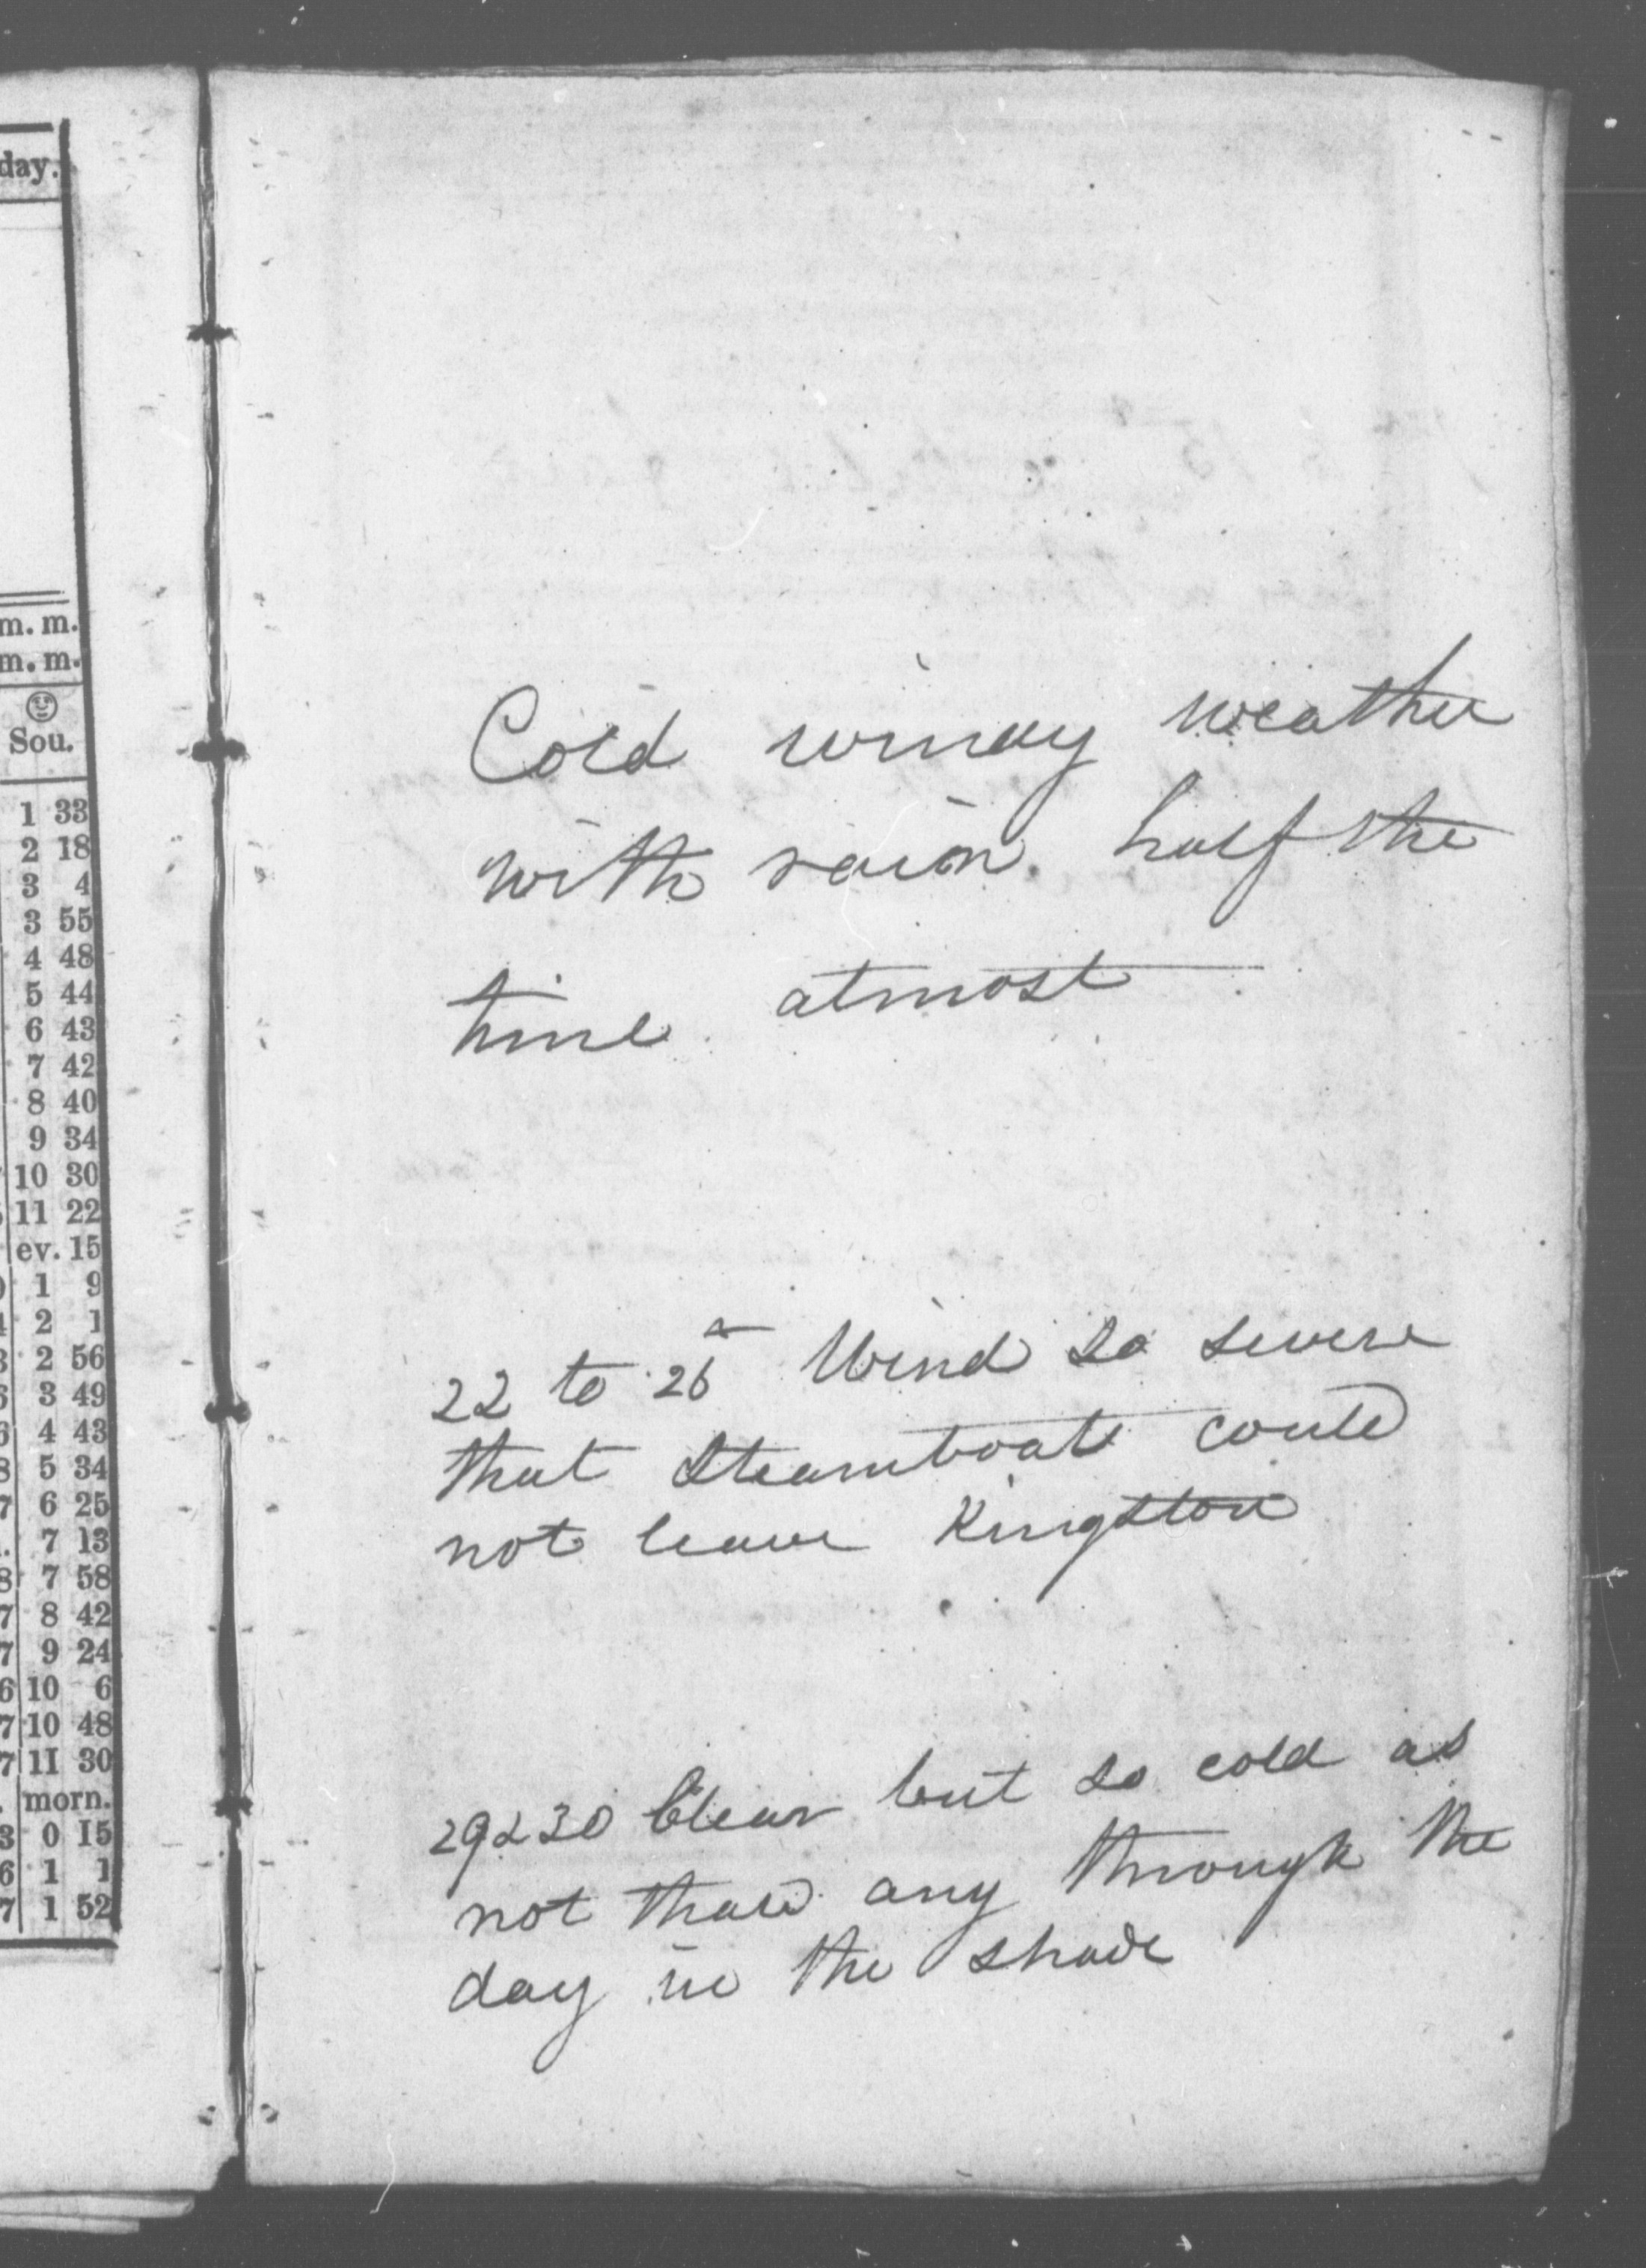 day.
m. m.
m. m.
Sou.
1 33
2 18
3 4
3 55
4 48
5 44
6 43
7 42
8 40
9 34
10 30
11 22
ev. 15
1 9
2 1
2 56
3 49
4 43
5 34
6 25
7 13
7 58
8 42
9 24
10 6
10 48
11 30
morn.
0 15
1 1
1 52
Cold windy weather
with rain half the
time almost
22 to 26 Wind so severe
that Steamboats could
not leave Kingston
29 & 30 Clear but so cold as
not thaw any through the
day in the shade